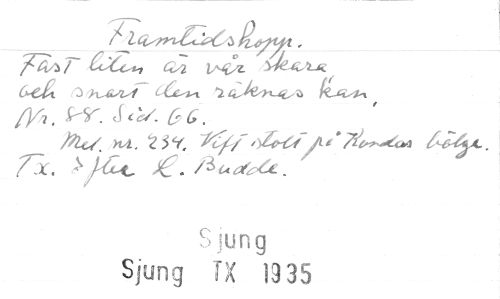 Framtidshopp.
Fast liten är vår skara
och snart den räknas kan,
Nr. 88. Sid. 66.
Mel. nr. 234. Vift stolt på Kodans bölja.
Tx. Efter L. Budde.
Sjung
Sjung TX 1935